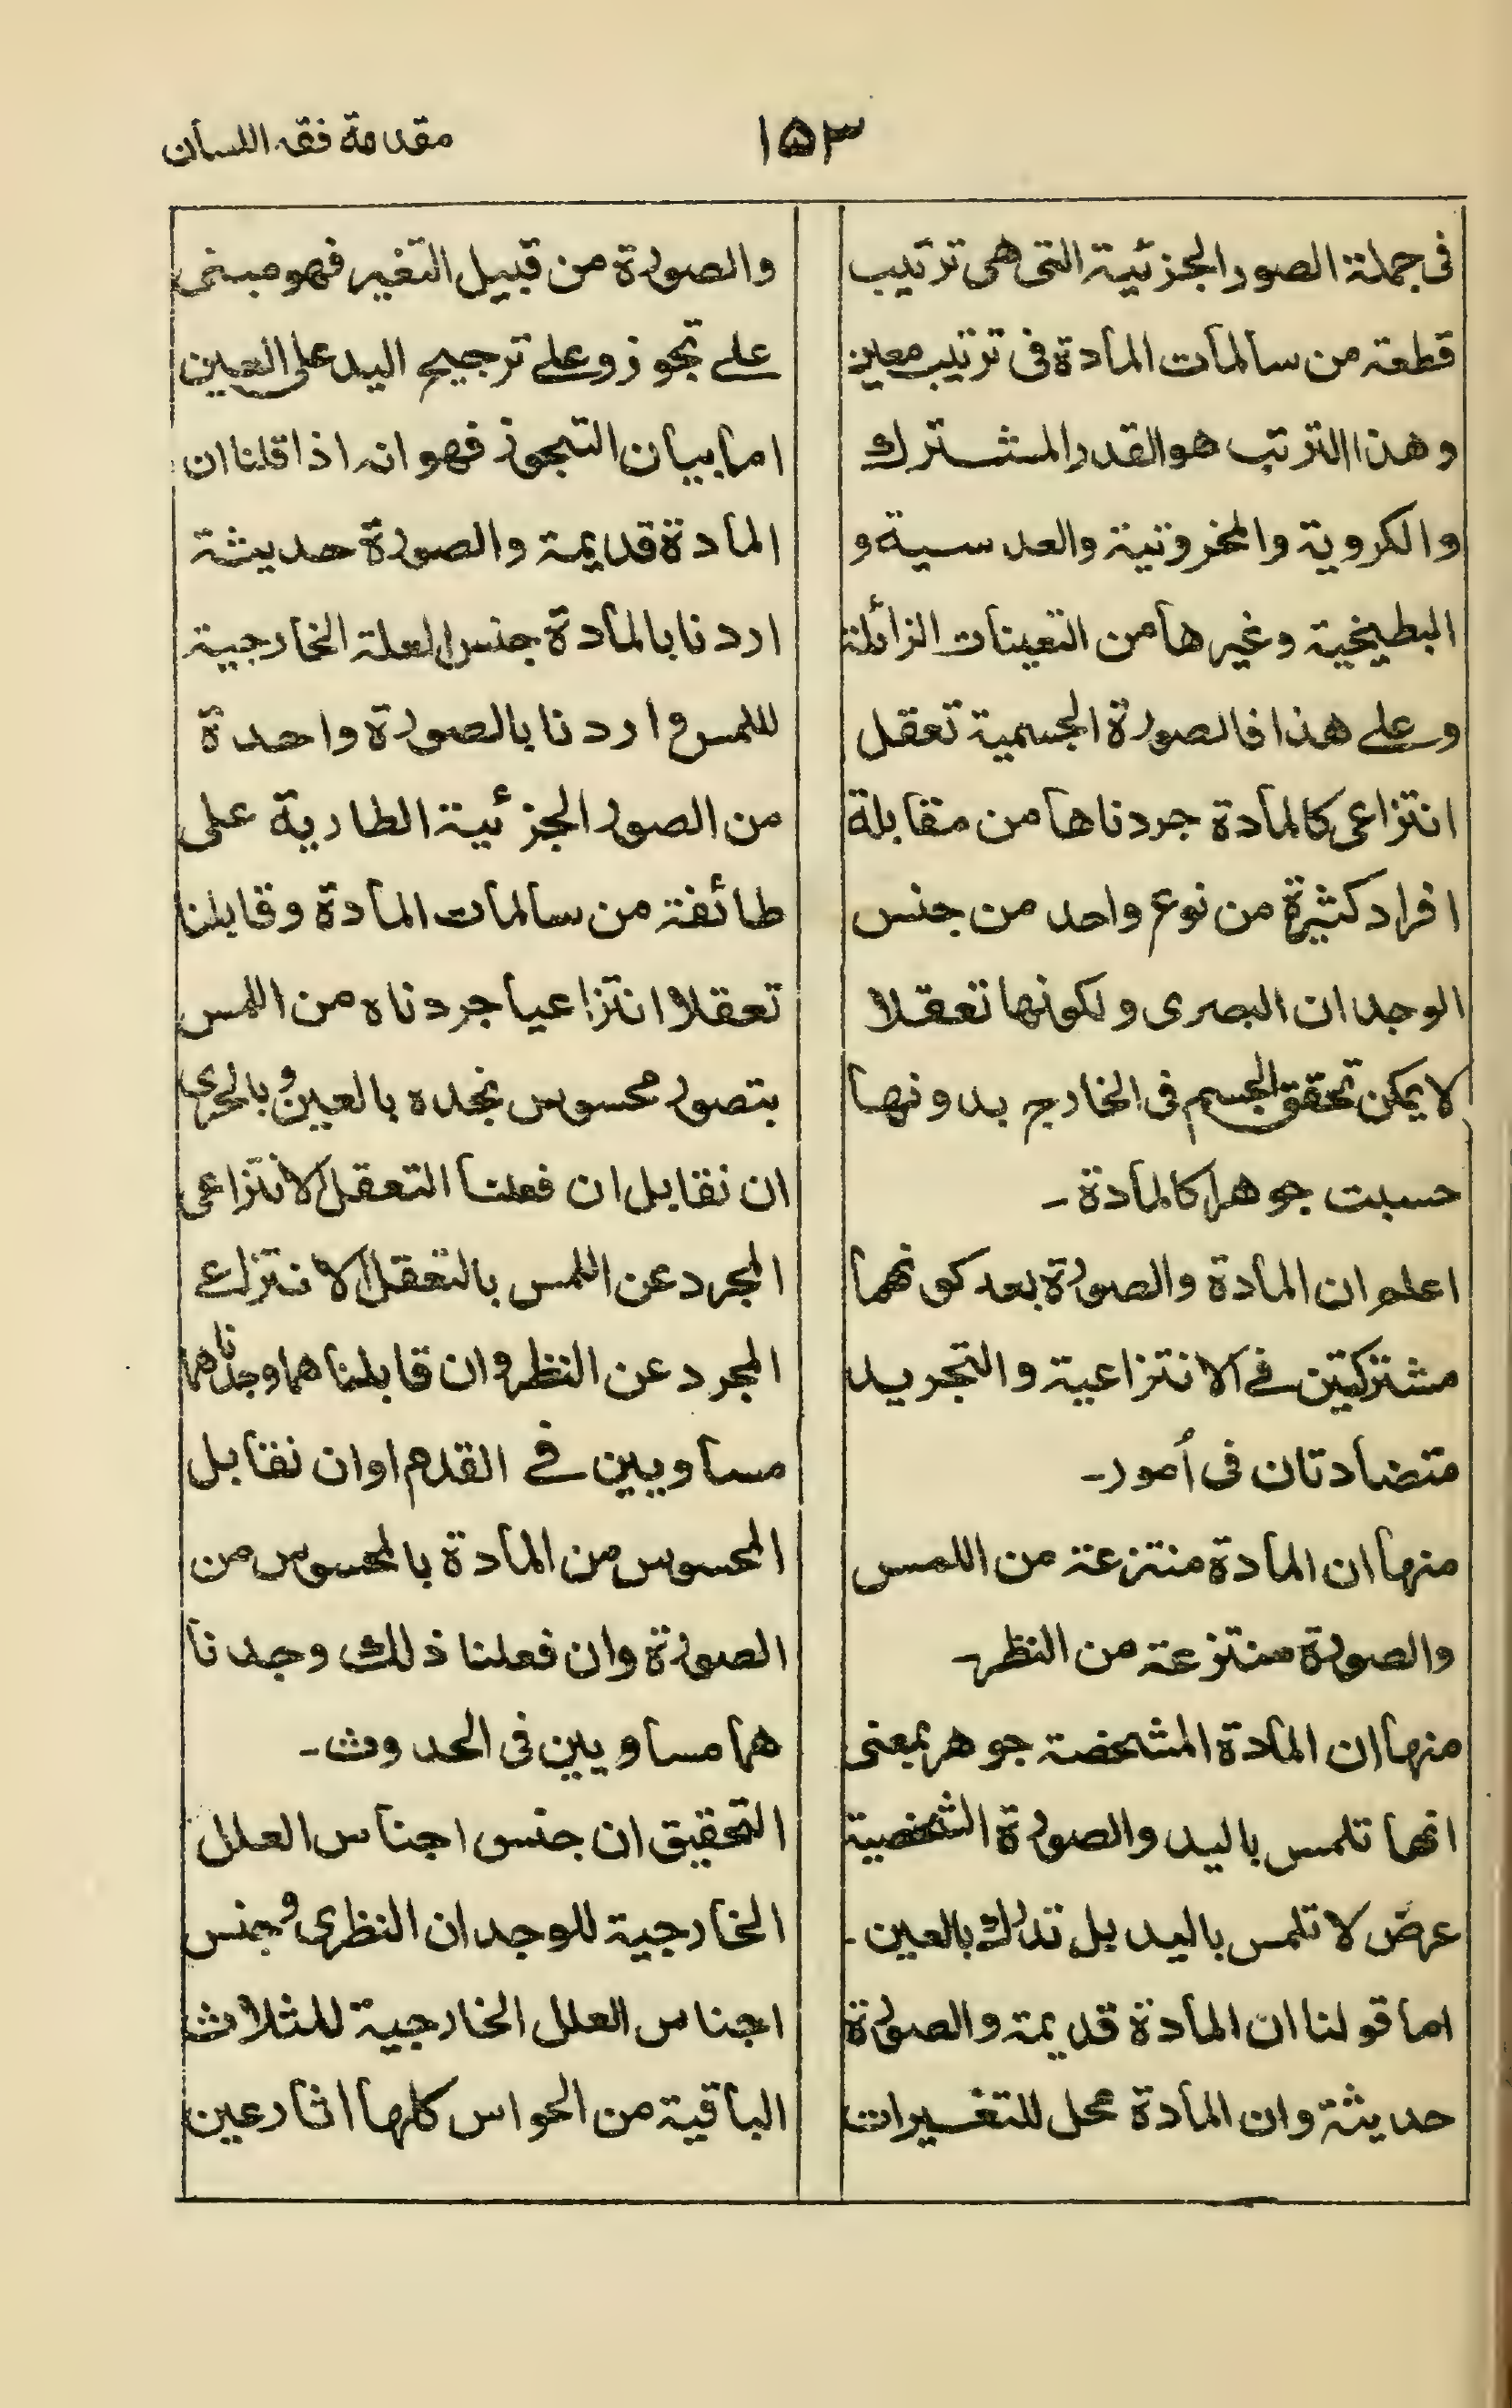 مقدمة فقه اللسان
١٥٣
فى جملة الصور الجزئية التى هى ترتيب
قطعة من سالمات المادة فى ترتيب معين
وهذا الترتب هو القدر المشترك
والكروية والمخروتية والعدسية و
البطيخية وغيرها من التعينات الزائلة
وعلے هذا فالصورة الجسمية تعقل
انتزاعى كالمادة جردناها من مقابلة
افراد كثيرة من نوع واحد من جنس
الوجدان البصرى ولكونها تعقلا
لا يمكن تحقق الجسم فى الخارج بدونها
حسبت جوهرا كالمادة ـ
اعلم ان المادة والصورة بعد كونهما
مشتركتين فے الانتزاعية والتجريد
متضادتان فى أمور ـ
منها ان المادة منتزعة من اللمس
والصورة منتزعة من النظر ـ
منها ان المادة المشخصة جوهر بمعنى
انها تلمس باليد والصورة الشخصية
عرض لا تلمس باليد بل تدرك بالعين ـ
اما قولنا ان المادة قديمة والصورة
حديثة وان المادة محل للتغسيرات
والصورة من قبيل التغير فهو مبنى
علے تجوز وعلے ترجيح اليد على العين
اما بيان التجوز فهو انه اذا قلنا ان
المادة قديمة والصورة حديثة
اردنا بالمادة جنس العلة الخارجية
للمس واردنا بالصورة واحدة
من الصور الجزئية الطارية على
طائفة من سالمات المادة وقابلنا
تعقلا انتزاعيا جردناه من اللمس
بتصور محسوس نجده بالعين و بالحرى
ان نقابل ان فعلنا التعقل الانتزاعى
المجرد عن اللمس بالتعقل الانتزاعے
المجرد عن النظر وان قابلناهما وجدناهما
مساويين فے القدم اوان نقابل
المحسوس من المادة بالمحسوس من
الصورة وان فعلنا ذلك وجدنا
هما مساويين فى الحدوث ـ
التحقيق ان جنس اجناس العلل
الخارجية للوجدان النظرى وجنس
اجناس العلل الخارجية للثلاث
الباقية من الحواس كلها اثار عين